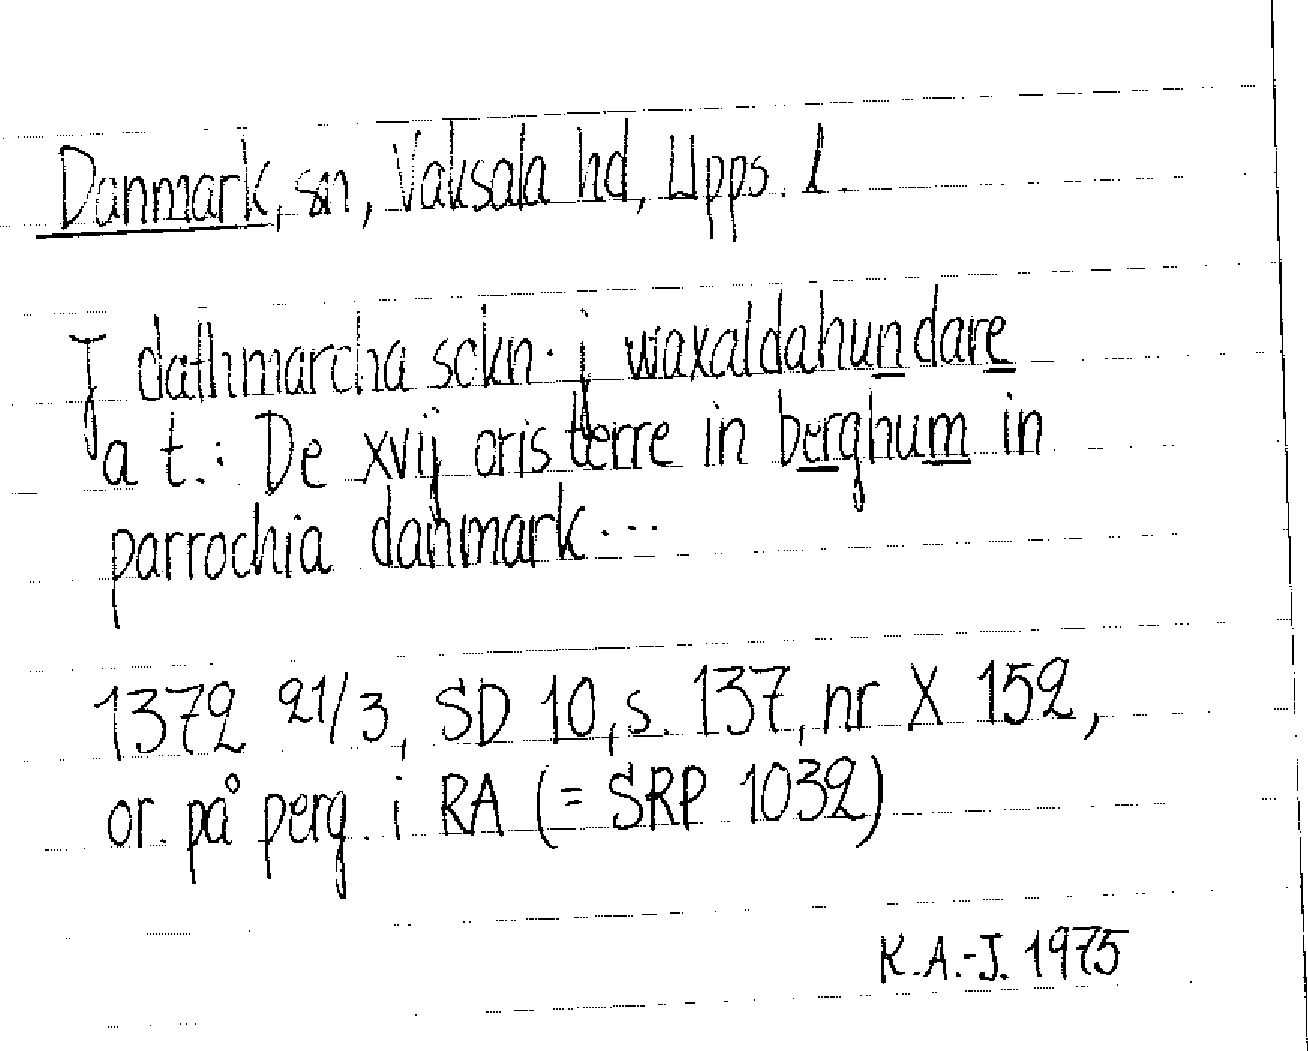 Danmark, sn, Vaksala hd, Upps. l.
J dathmarcha sckn. j waxaldahundare
a t.: De xvij oris terre in berghum in
parrochia danmark...
1372 21/3, SD 10, s. 137, nr X 152,
or. på perg. i RA (= SRP 1032)
K.A.-J. 1975